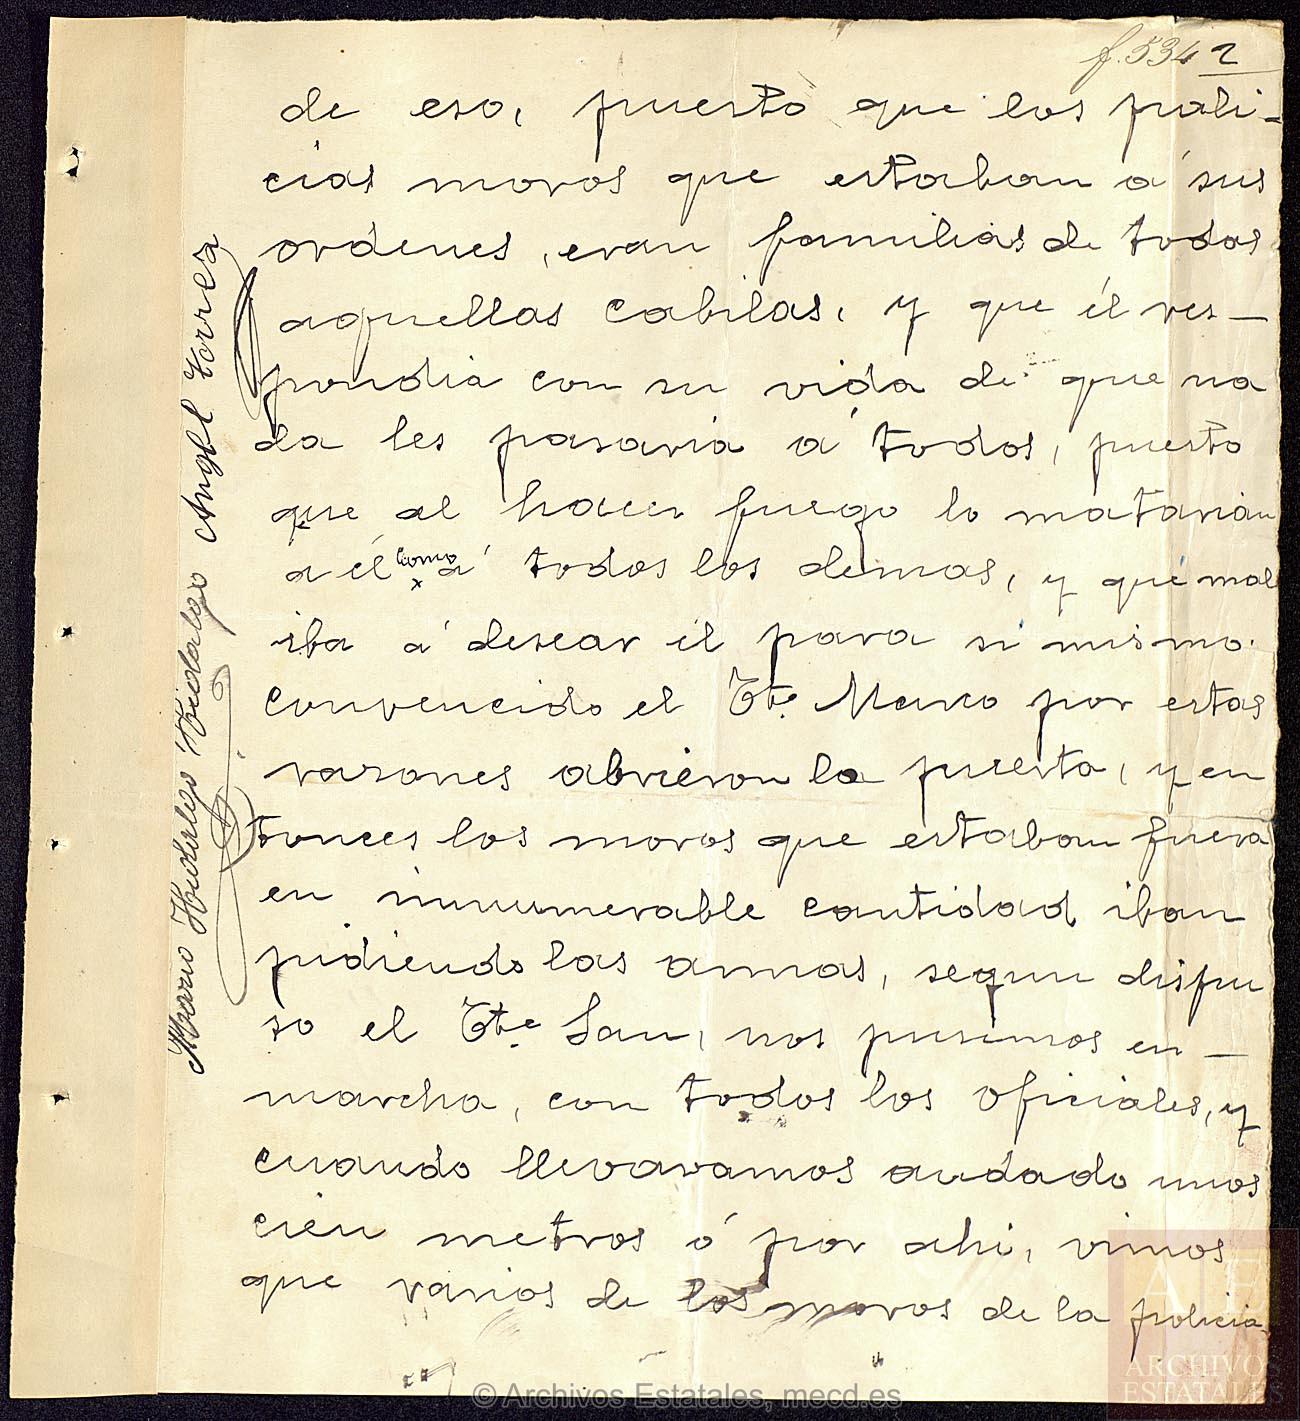 f. 534 2
de eso, puesto que los poli-
cias moros que estaban á sus
ordenes, eran familias de todas
aquellas cabilas, y que él res-
pondia con su vida de que na
da les pasaria á todos, puesto
que al hacer fuego lo matarian
a él como á todos los demas, y que mal
x
iba á desear él para si mismo.
convencido el Tte. Marco por estas
razones abrieron la puerta, y en
tonces los moros que estaban fuera
en innumerable cantidad iban
pidiendo las armas, segun dispu
so el Tte. San, nos pusimos en-
marcha, con todos los oficiales, y
cuando llevavamos andado unos
cien metros ó por ahi, vimos
que varios de los moros de la policia
Mario Hidalgo Hidalgo Angel Torres
ARCHIVOS
ESTATALES
© Archivos Estatales, mecd.es